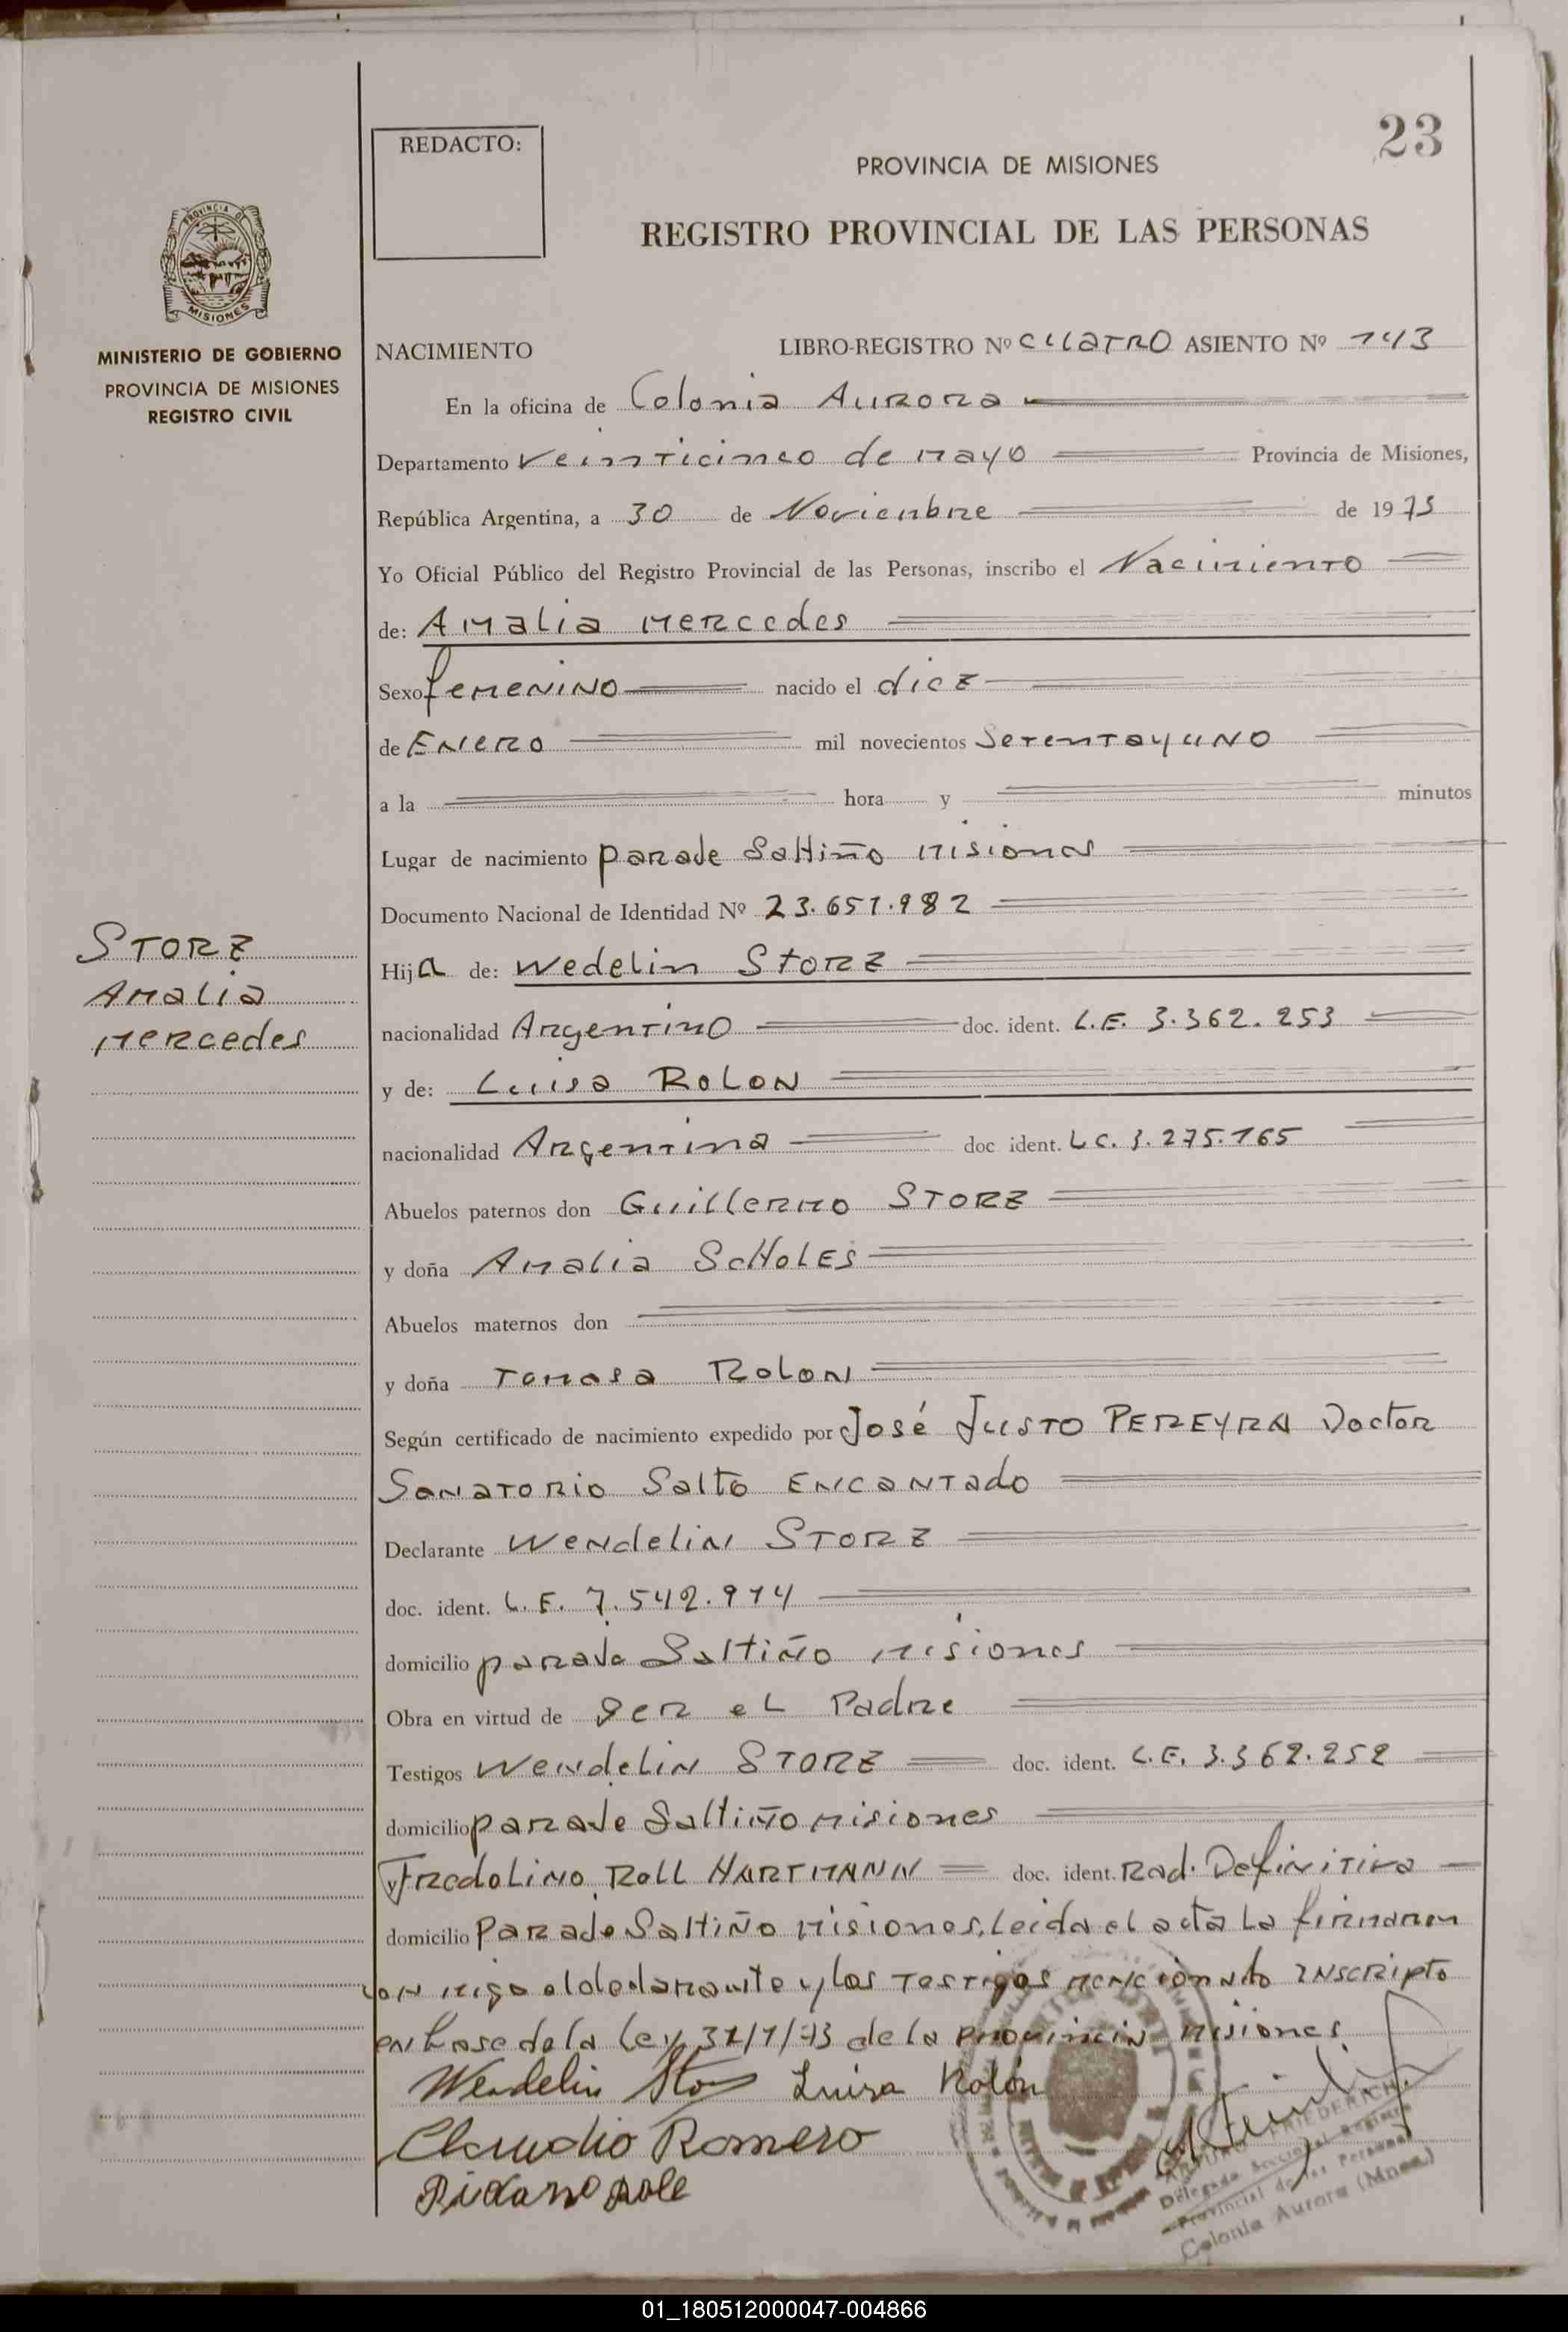 23
REDACTO:
PROVINCIA DE MISIONES
REGISTRO PROVINCIAL DE LAS PERSONAS
PROVINCIA DE
MISIONES
MINISTERIO DE GOBIERNO
PROVINCIA DE MISIONES
REGISTRO CIVIL
NACIMIENTO LIBRO-REGISTRO Nº CUATRO ASIENTO Nº 143
En la oficina de Colonia Aurora
Departamento Veinticinco de Mayo Provincia de Misiones,
República Argentina, a 30 de Noviembre de 1975
Yo Oficial Público del Registro Provincial de las Personas, inscribo el Nacimiento
de: Amalia Mercedes
Sexo femenino nacido el diez
de Enero mil novecientos Setentayuno
a la hora y minutos
Lugar de nacimiento paraje Saltiño Misiones
Documento Nacional de Identidad Nº 23.651.982
STORZ
Amalia
Mercedes
Hija de: Wedelin Storz
nacionalidad Argentino doc. ident. L.E. 3.362.253
y de: Luisa ROLON
nacionalidad Argentina doc ident. LC. 3.275.165
Abuelos paternos don Guillermo STORZ
y doña Amalia ScHoLES
Abuelos maternos don
y doña Tomasa Rolon
Según certificado de nacimiento expedido por José Justo PEREYRA Doctor
Sanatorio Salto Encantado
Declarante Wendelin STORZ
doc. ident. L.E. 7.542.914
domicilio paraje Saltiño Misiones
Obra en virtud de Ser el Padre
Testigos Wendelin STORZ doc. ident. L.E. 3.362.252
domicilio paraje Saltiño Misiones
y Fredolino Roll HARTMANN doc. ident. Rad. Definitiva
domicilio Paraje Saltiño Misiones, leida el acta la firmaron
con migo el declarante y los Testigos mencionado inscripto
en base de la Ley 31/1/73 de la provincia Misiones
Wendelin Luisa Rolón
Claudio Romero
ARTURO FRIEDERICH
Delegado Seccional Registro
Provincial de las Personas
Colonia Aurora (Mnes.)
01_180512000047-004866